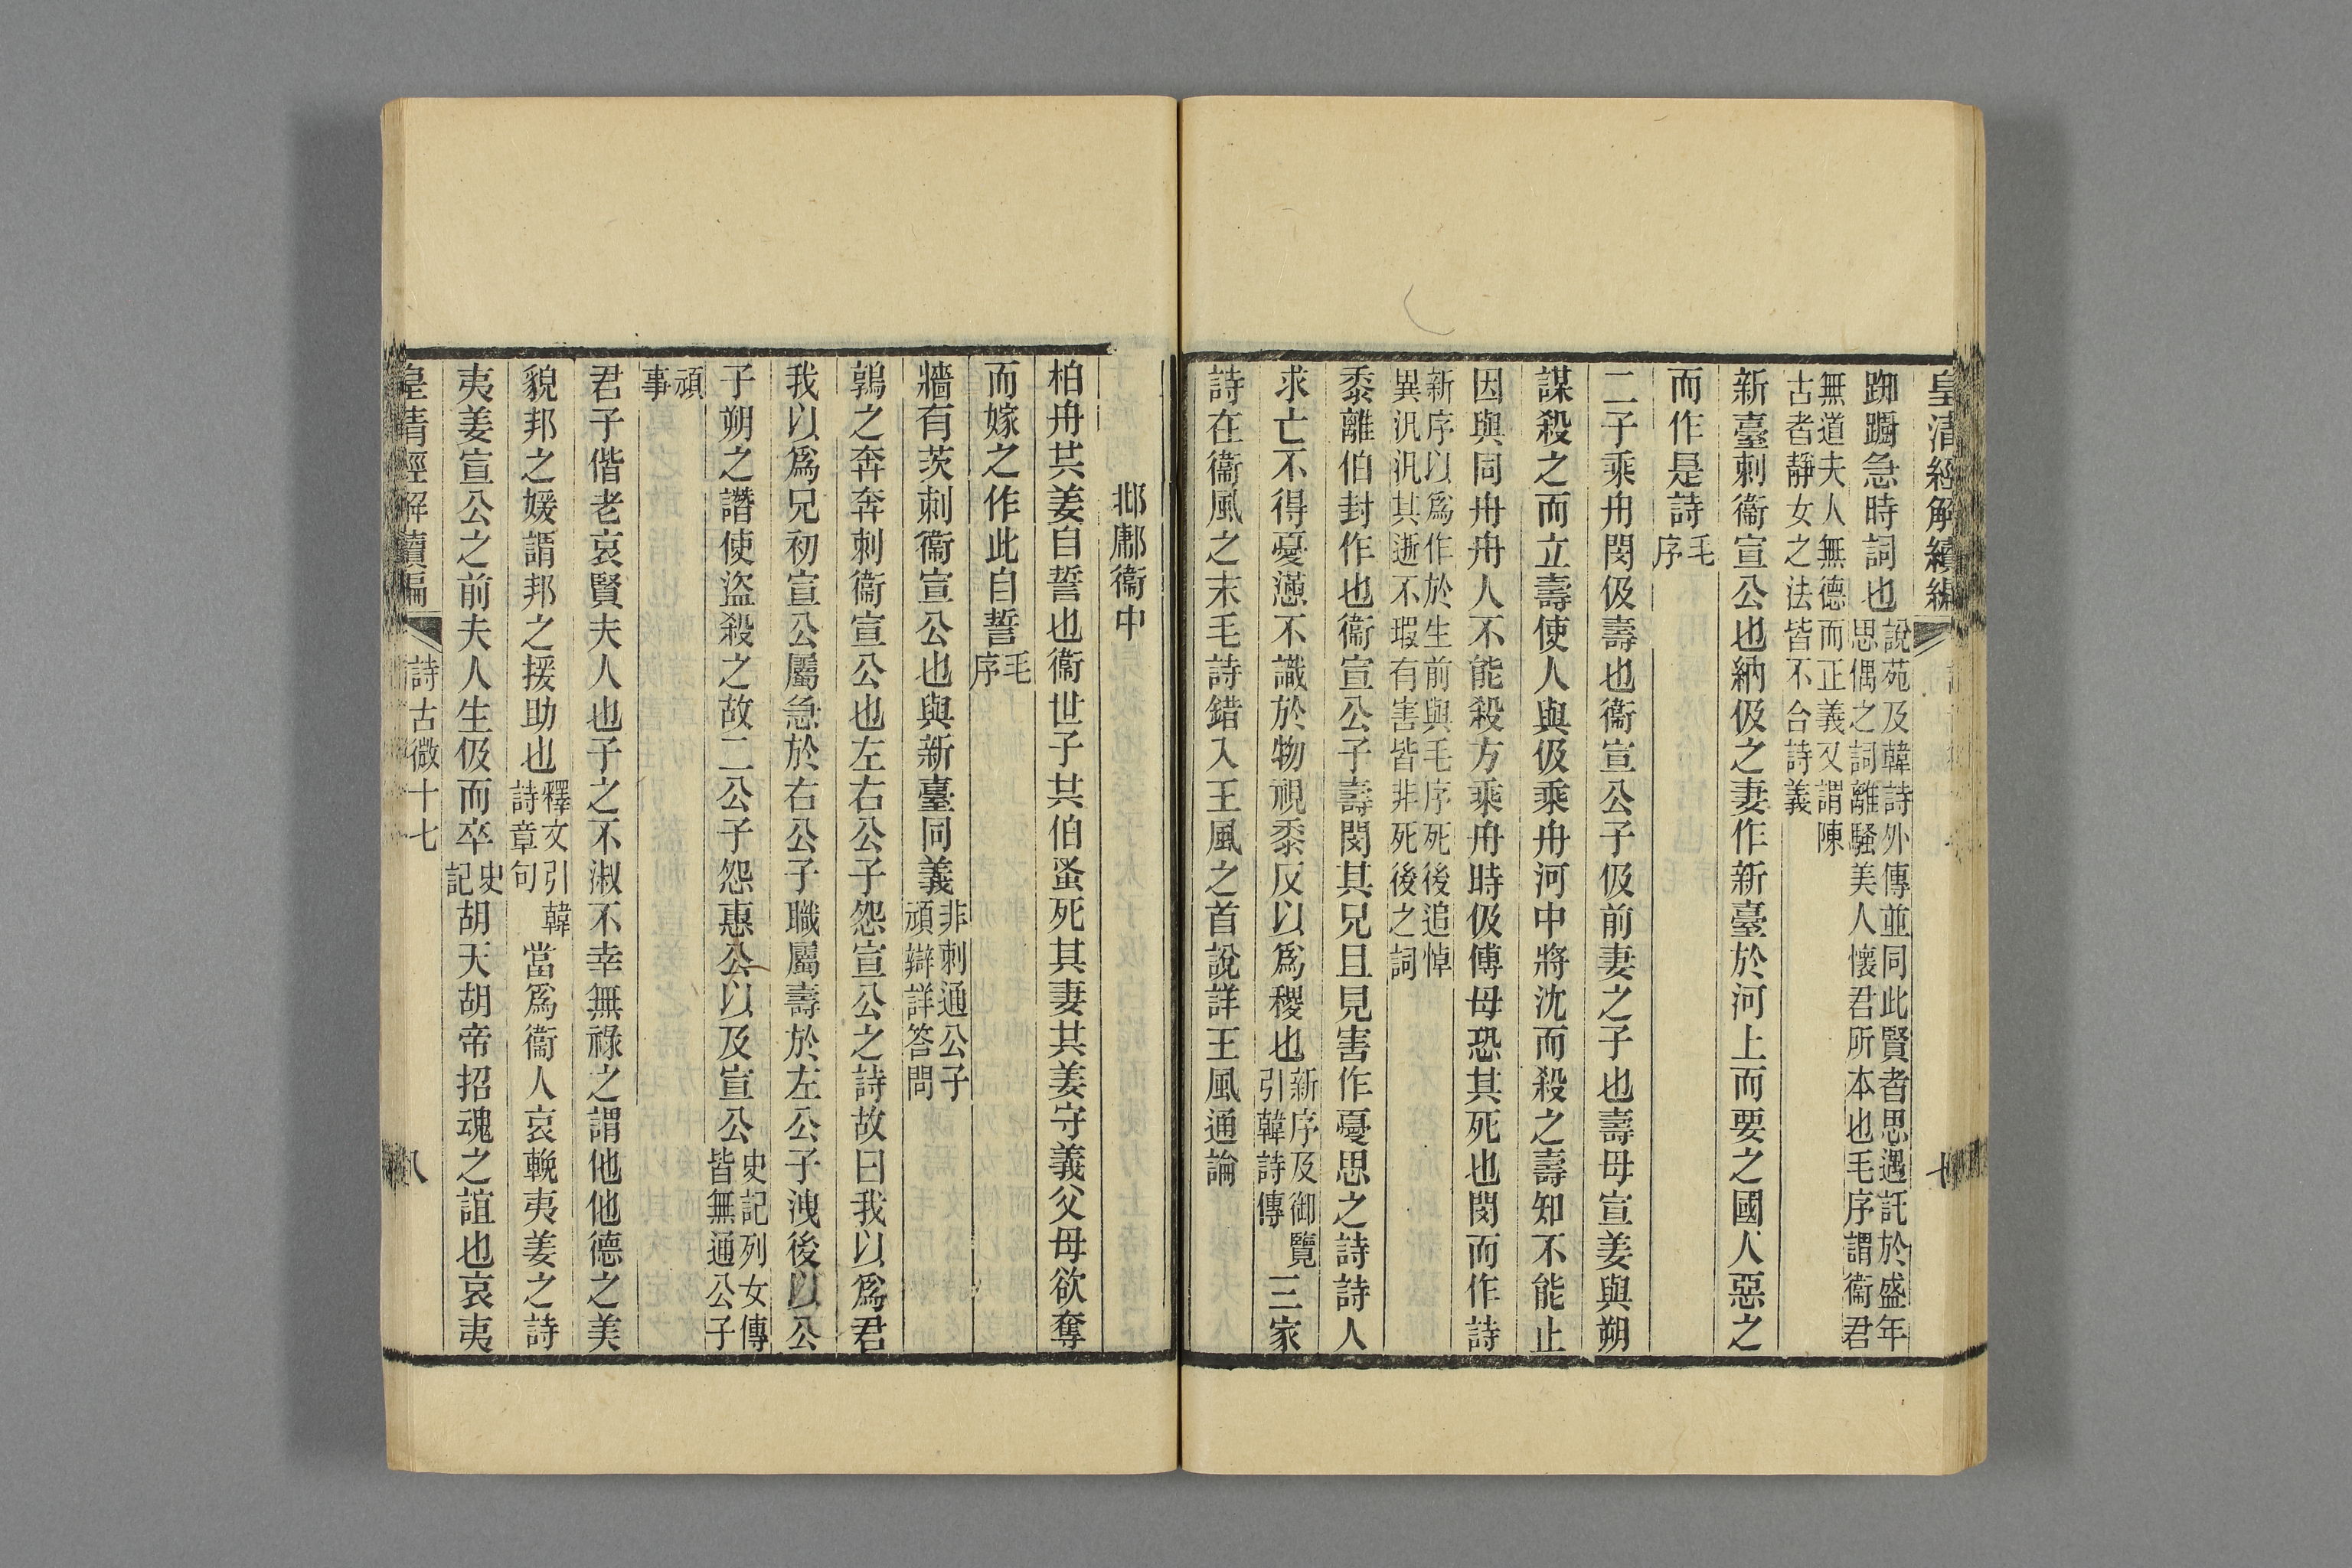 皇清經解續編
踟躕急時詞也說苑及韓詩外傳並同此賢者思遇託於盛年
思偶之詞離騷美人懷君所本也毛序謂衞君
無道夫人無德而正義又謂陳
古者靜女之法皆不合詩義
新臺刺衞宣公也納伋之妻作新臺於河上而要之國人惡之
而作是詩毛序
二子乘舟閔伋壽也衞宣公子伋前妻之子也壽母宣姜與朔
謀殺之而立壽使人與伋乘舟河中將沈而殺之壽知不能止
因與同舟舟人不能殺方乘舟時伋傅母恐其死也閔而作詩
新序以爲作於生前與毛序死後追悼
異汎汎其逝不瑕有害皆非死後之詞
黍離伯封作也衞宣公子壽閔其兄且見害作憂思之詩詩人
求亡不得憂懣不識於物視黍反以爲稷也新序及御覽引韓詩傳三家
詩在衞風之末毛詩錯入王風之首說詳王風通論
邶鄘衞中
柏舟共姜自誓也衞世子共伯蚤死其妻共姜守義父母欲奪
而嫁之作此自誓毛序
牆有茨刺衞宣公也與新臺同義非刺通公子頑辯詳答問
鶉之奔奔刺衞宣公也左右公子怨宣公之詩故曰我以爲君
我以爲兄初宣公屬急於右公子職屬壽於左公子洩後以公
子朔之譖使盜殺之故二公子怨惠公以及宣公史記列女傳皆無通公子
頑事
君子偕老哀賢夫人也子之不淑不幸無祿之謂他他德之美
貌邦之媛謂邦之援助也釋文引韓詩章句當爲衞人哀輓夷姜之詩
夷姜宣公之前夫人生伋而卒史記胡天胡帝招魂之誼也哀夷
皇清經解續編 詩古微十七 八